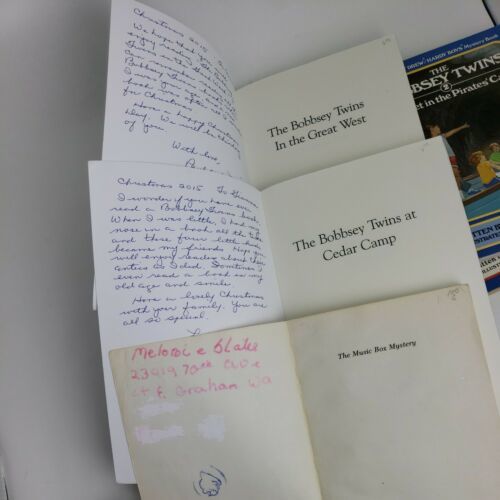 Christmas 2015
We hope that you
enjoy reading
Can remember
Bobbsey Twins
I was your age
book was
for Christmas
Have a happy Christmas
day. We will be thinking
of you.
With love,
The Bobbsey Twins
In the Great West
DREW · HARDY BOYS Mystery Book
THE
BBSEY TWINS
2
et in the Pirates' C
TTEN B
Christmas 2015 To
I wonder if you have ever
read a Bobbsey Twins book.
When I was little, I had my
nose in a book all the time
and these four little
became my friends. Hope you
will enjoy reading about their
antics as I did. Sometimes I
even read a book in my
old age and smile.
Have a lovely Christmas
with your family. You are
all so special.
The Bobbsey Twins at
Cedar Camp
Melodi e Blake
23919 70th Ave
Ct E. Graham Wa
The Music Box Mystery